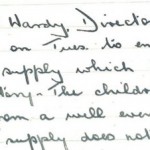 Hardy. Directo
on Tues. to en
supply which
tory. The childr
om a well eve
supply does not